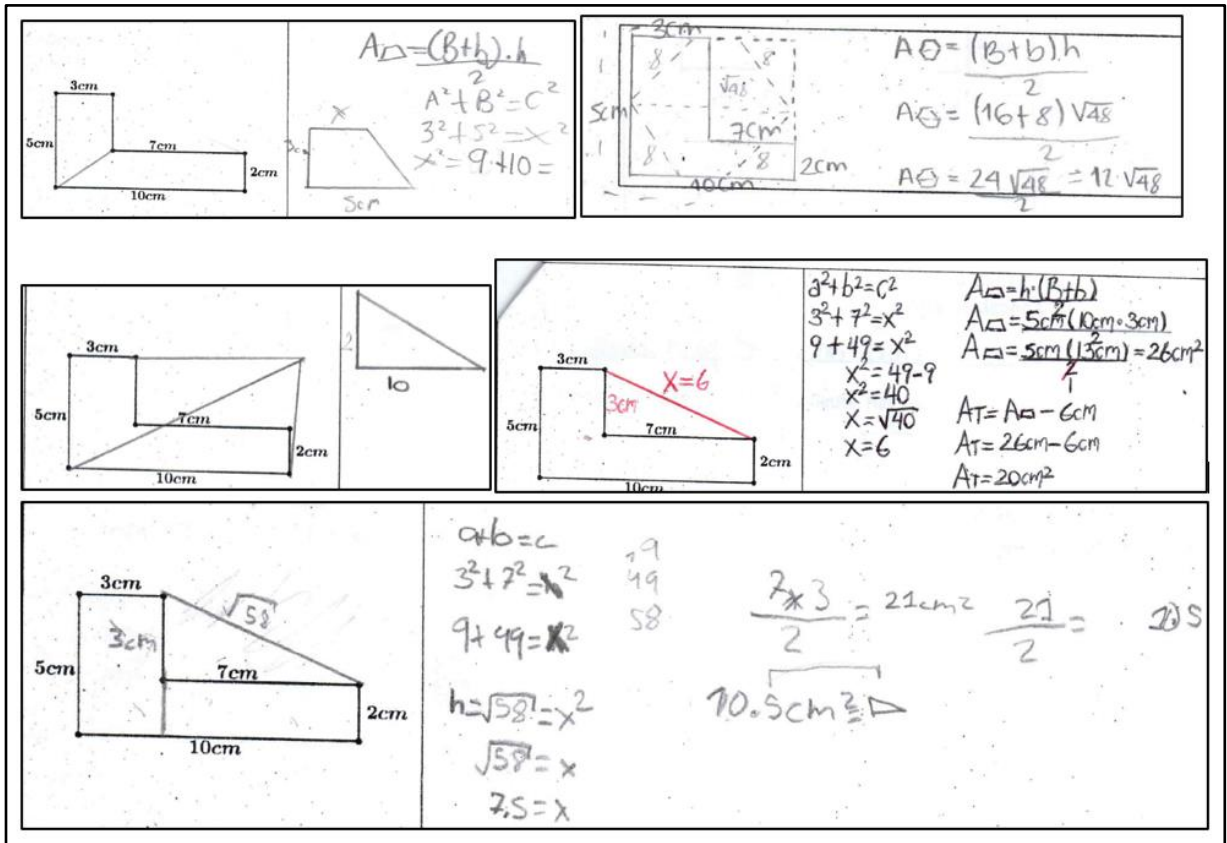 3cm
5cm
7cm
2cm
10cm
A⏢=(B+b).h
2
A²+B²=C²
3²+5²=x²
x²=9+10=
x
5cm
3cm
8
8
√48
5cm
7cm
8
8
2cm
10cm
A⬡=(B+b).h
2
A⬡=(16+8)√48
2
A⬡=24√48=12.√48
2
3cm
5cm
7cm
2cm
10cm
2
10
3cm
X=6
3cm
5cm
7cm
2cm
10cm
a²+b²=c²
3²+7²=x²
9+49=x²
x²=49-9
x²=40
x=√40
x=6
A⏢=h.(B+b)
2
A⏢=5cm(10cm.3cm)
2
A⏢=5cm(13cm)=26cm²
2
1
AT=A⏢-6cm
AT=26cm-6cm
AT=20cm²
3cm
√58
3cm
5cm
7cm
2cm
10cm
a+b=c
3²+7²=x²
9+49=x²
h=√58=x²
√58=x
7,5=x
9
49
58
7x3=21cm²
2
21=
2
10.5cm²=◺